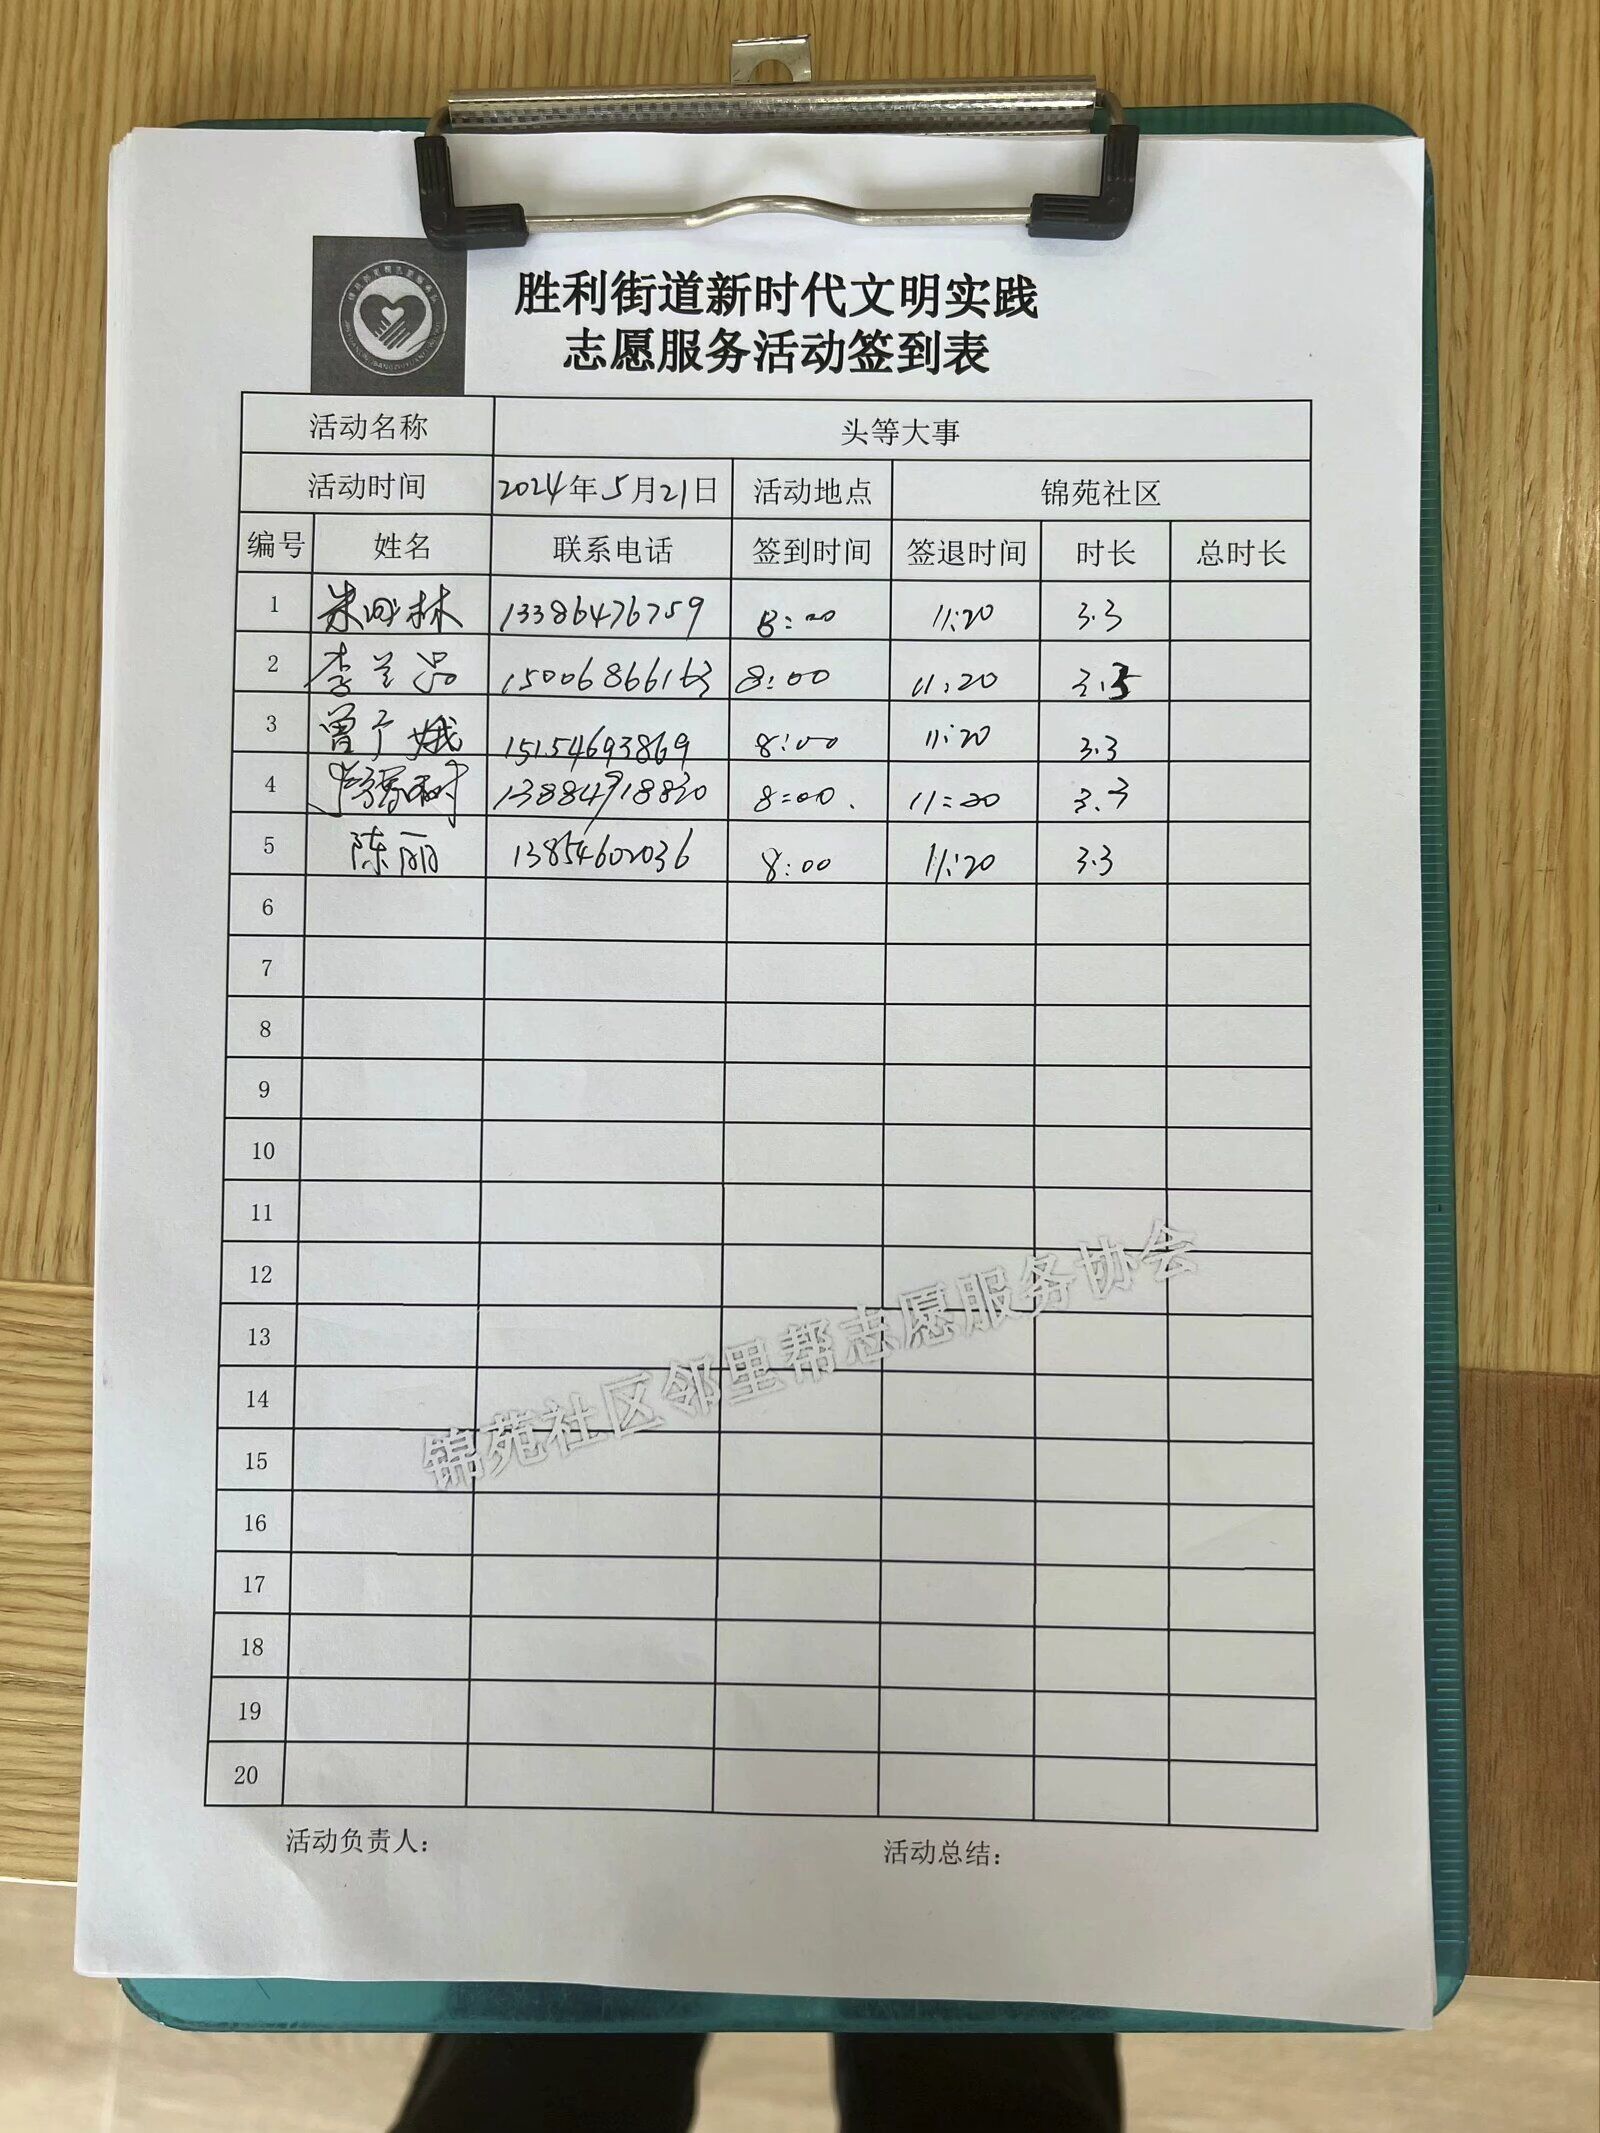 胜利街道新时代文明实践
志愿服务活动签到表
活动名称 头等大事
活动时间 2024年5月21日 活动地点 锦苑社区
编号 姓名 联系电话 签到时间 签退时间 时长 总时长
1 朱林 13386476759 8:00 11:20 3.3
2 李兰品 15006866163 8:00 11:20 3.3
3 曾娥 15154693869 8:00 11:20 3.3
4 13884918830 8:00 11:20 3.3
5 陈丽 13854602036 8:00 11:20 3.3
6
7
8
9
10
11
12
13
14
15
16
17
18
19
20
锦苑社区邻里帮志愿服务协会
活动负责人: 活动总结: